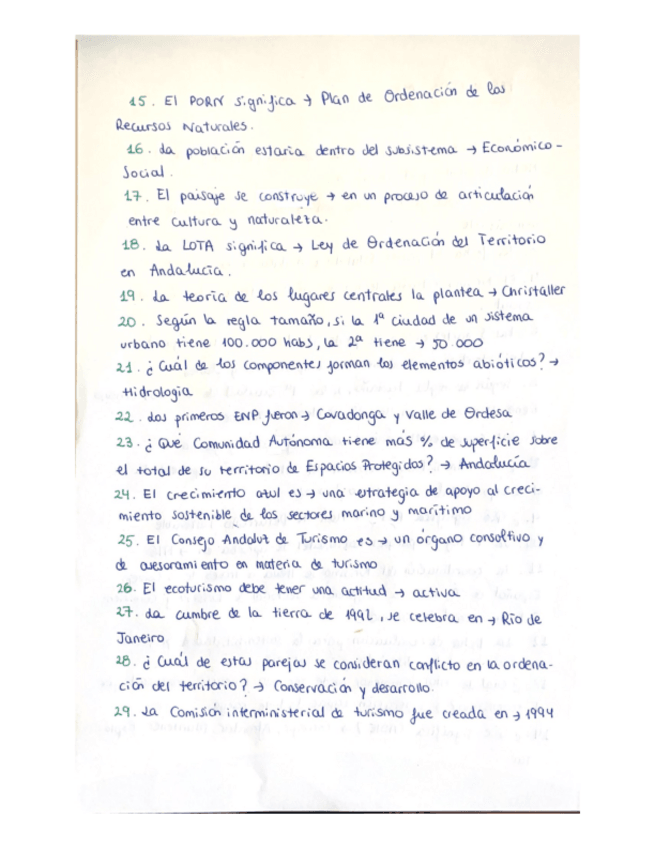 15. El PORN significa → Plan de Ordenación de los
Recursos Naturales.
16. La población estaria dentro del subsistema → Económico-
Social.
17. El paisaje se construye → en un proceso de articulación
entre cultura y naturaleza.
18. La LOTA significa → Ley de Ordenación del Territorio
en Andalucía.
19. La teoría de los lugares centrales la plantea → Christaller
20. Según la regla tamaño, si la 1ª ciudad de un sistema
urbano tiene 100.000 habs, la 2ª tiene → 50.000
21. ¿Cuál de los componentes forman los elementos abióticos? →
Hidrologia
22. Los primeros ENP fueron → Covadonga y Valle de Ordesa
23. ¿Qué Comunidad Autónoma tiene más % de superficie sobre
el total de su territorio de Espacios Protegidos? → Andalucía
24. El crecimiento azul es → una estrategia de apoyo al creci-
miento sostenible de los sectores marino y marítimo
25. El Consejo Andaluz de Turismo es → un órgano consultivo y
de asesoramiento en materia de turismo
26. El ecoturismo debe tener una actitud → activa
27. La cumbre de la tierra de 1992, se celebra en → Río de
Janeiro
28. ¿Cuál de estas parejas se consideran conflicto en la ordena-
ción del territorio? → Conservación y desarrollo.
29. La Comisión interministerial de turismo fue creada en → 1994